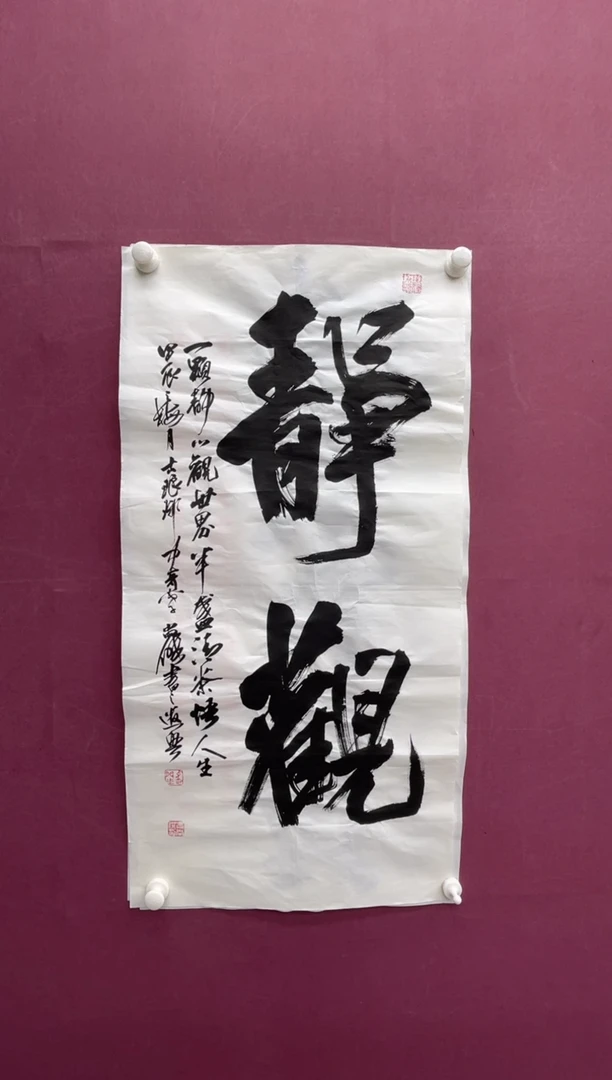 靜觀
一顆靜心觀世界半盞清茶悟人生
甲辰梅月古琅琊
書之遣興